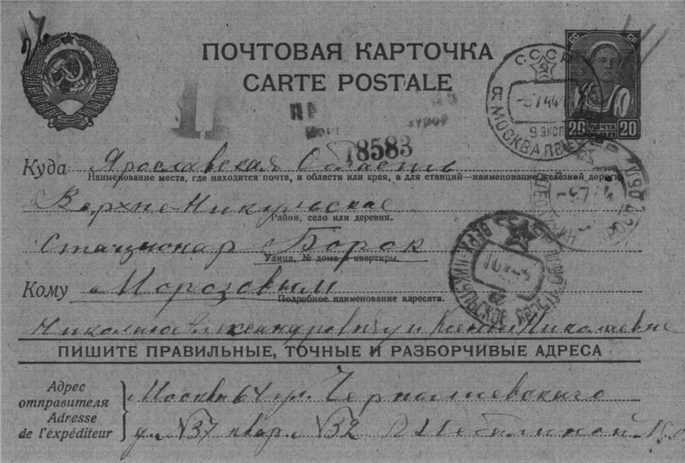 ПОЧТОВАЯ КАРТОЧКА
CARTE POSTALE
СССР
МОСКВА
20 ПОЧТА 20
18583
Куда Ярославская Область
Наименование места, где находится почта, и области или края, а для станций—наименование железной дороги
Верхне Никульское
Район, село или деревня.
Стационар Борок
Улица, № дома и квартиры.
Кому Морозовым
Подробное наименование адресата.
Николаю Александровичу и Ксении Николаевне
ПИШИТЕ ПРАВИЛЬНЫЕ, ТОЧНЫЕ И РАЗБОРЧИВЫЕ АДРЕСА
Адрес отправителя Москва 64 ул. Чернышевского
Adresse de l'expéditeur д. №37 квар. №32